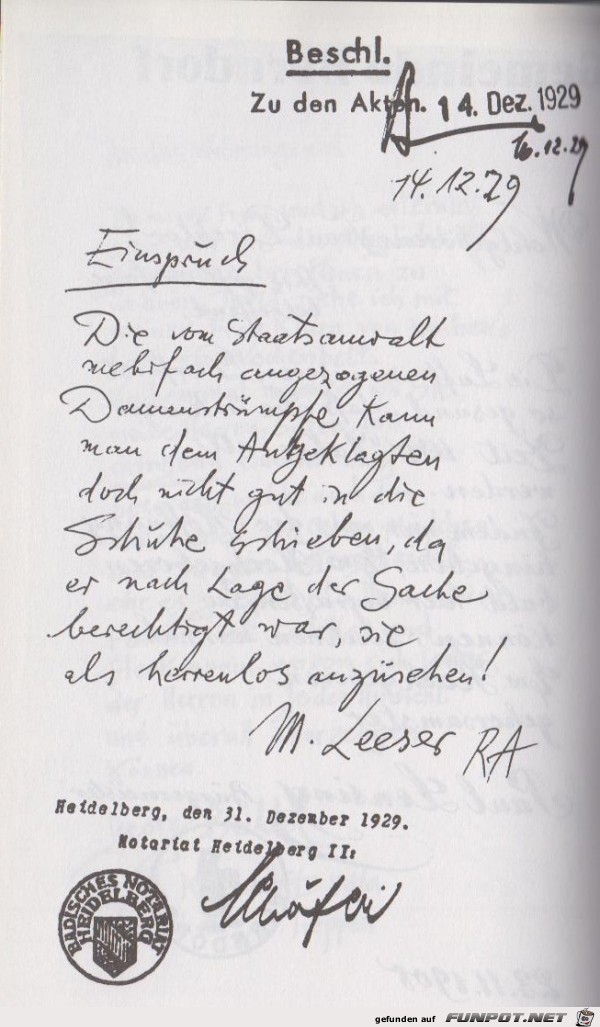 Beschl.
Zu den Akten. 14. Dez. 1929
16.12.29
14.12.29
Einspruch
Die vom Staatsanwalt
mehrfach angezogenen
Damenstrümpfe kann
man dem Angeklagten
doch nicht gut in die
Schuhe schieben, da
er nach Lage der Sache
berechtigt war, sie
als herrenlos anzusehen!
M. Leeser RA
Heidelberg, den 31. Dezember 1929.
Notariat Heidelberg II:
Schäfer
BADISCHES NOTARIAT
HEIDELBERG
gefunden auf FUNPOT.NET